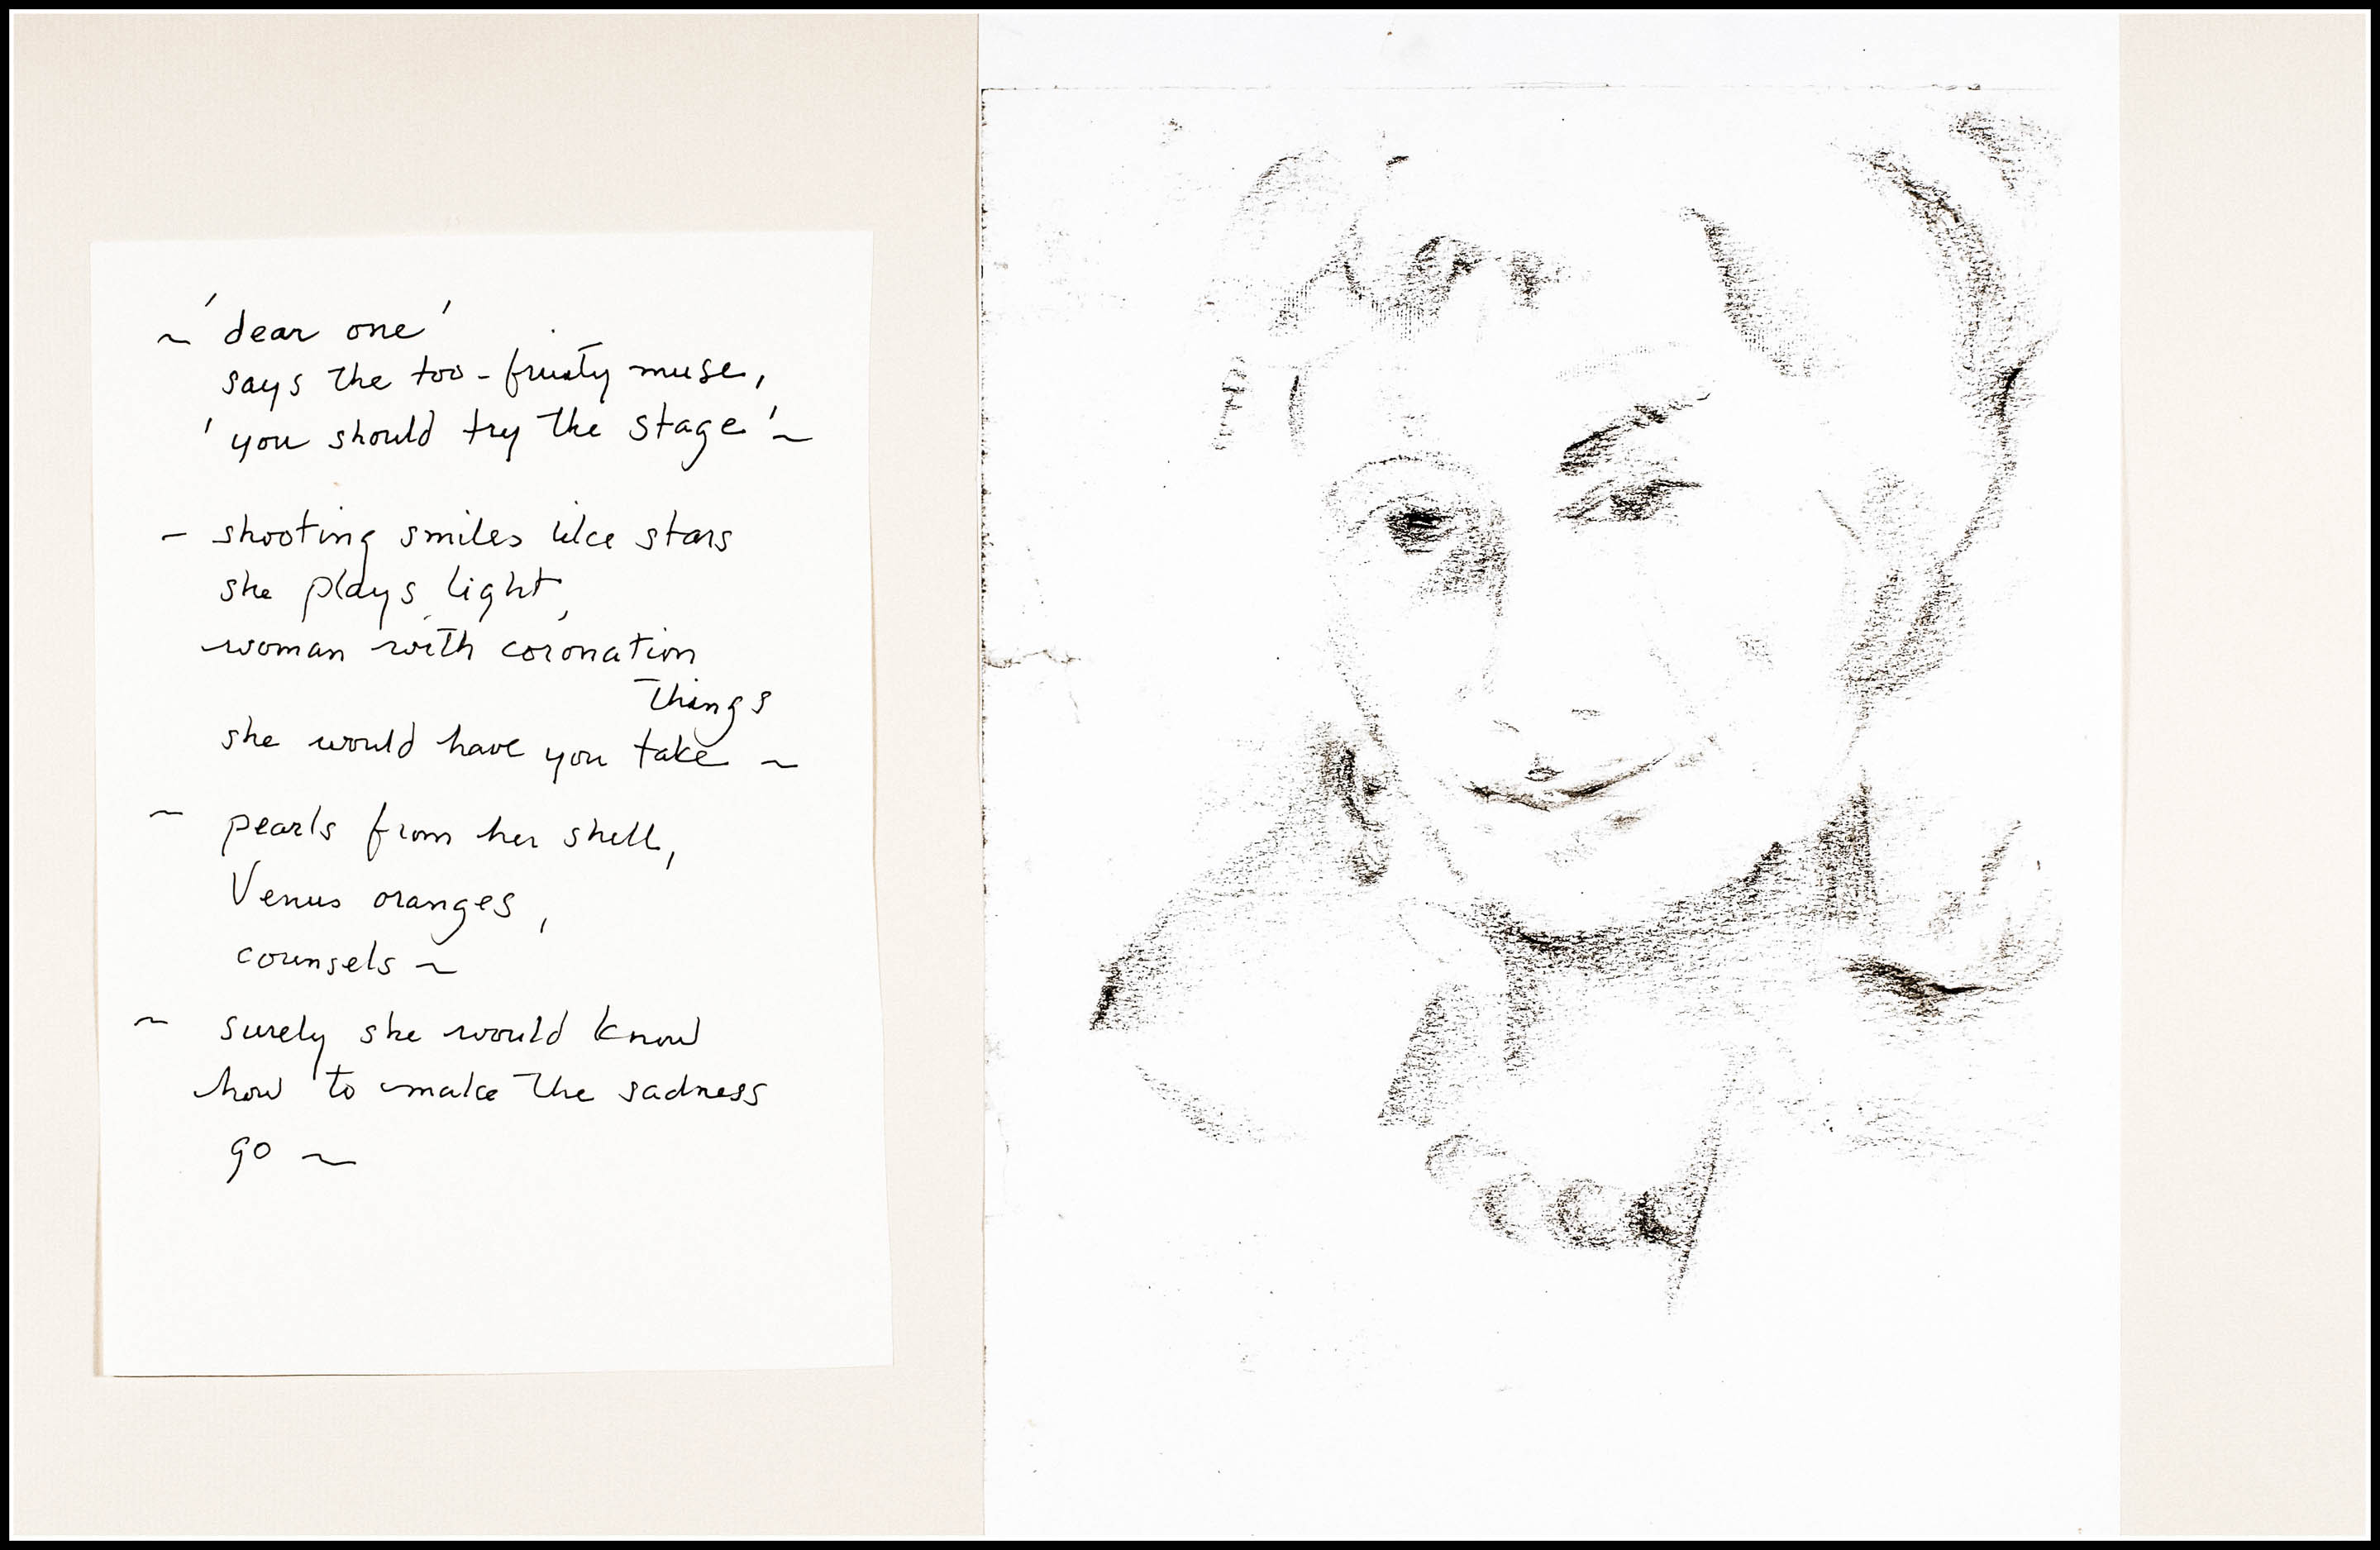 ~ 'dear one'
says the too-fruity muse,
'you should try the stage' ~
- shooting smiles like stars
she plays light,
woman with coronation
things
she would have you take ~
~ pearls from her shell,
Venus oranges,
counsels ~
~ surely she would know
how to make the sadness
go ~